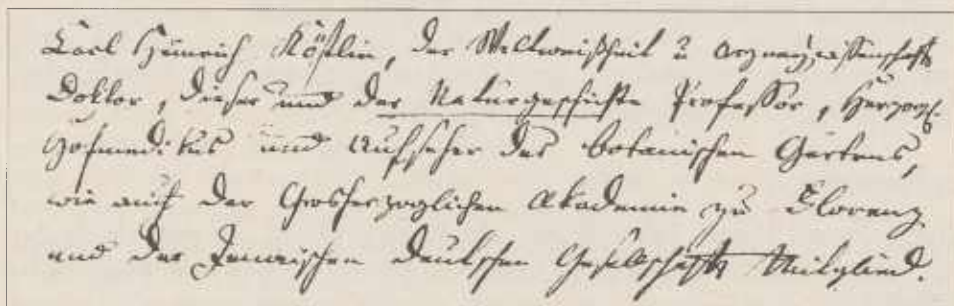 Carl Heinrich Köstlin, der Weltweißheit u Arzneywissenschaft
Doktor, dieser und der Naturgeschichte Professor, Herzogl.
Hofmedikus und Aufseher des botanischen Gartens,
wie auch der Grosherzoglichen Akademie zu Florenz
und der Jenaischen deutschen Gesellschaft Mitglied.